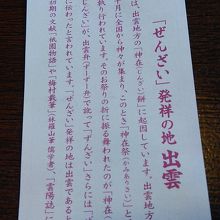 「ぜんざい」発祥の地 出雲
は、出雲地方の「神在（じんざい）餅」に起因しています。出雲地方
十月に全国から神々が集まり、このとき「神在祭（かみありさい）」と
執り行われています。そのお祭りの折に振る舞われたのが「神在
んざい」が、出雲弁（ずーずー弁）で訛って「ずんざい」さらには「ぜ
に伝わったと言われています。「ぜんざい」発祥の地は出雲であると
初期の文献「祇園物語」や「梅村載筆」（林羅山筆 儒学者）、「雲陽誌」に